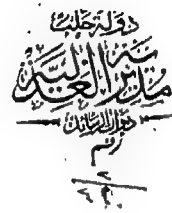 دولة حلب
مديرية العدلية
ديوان الرسائل
رقم